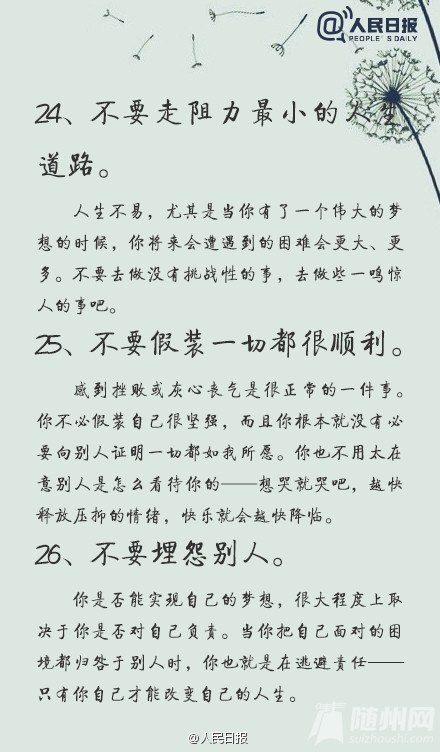 @人民日报
PEOPLE'S DAILY
24、不要走阻力最小的人生
道路。
人生不易，尤其是当你有了一个伟大的梦
想的时候，你将来会遭遇到的困难会更大、更
多。不要去做没有挑战性的事，去做些一鸣惊
人的事吧。
25、不要假装一切都很顺利。
感到挫败或灰心丧气是很正常的一件事。
你不必假装自己很坚强，而且你根本就没有必
要向别人证明一切都如我所愿。你也不用太在
意别人是怎么看待你的——想哭就哭吧，越快
释放压抑的情绪，快乐就会越快降临。
26、不要埋怨别人。
你是否能实现自己的梦想，很大程度上取
决于你是否对自己负责。当你把自己面对的困
境都归咎于别人时，你也就是在逃避责任——
只有你自己才能改变自己的人生。
随州网
suizhoushi.com
@人民日报